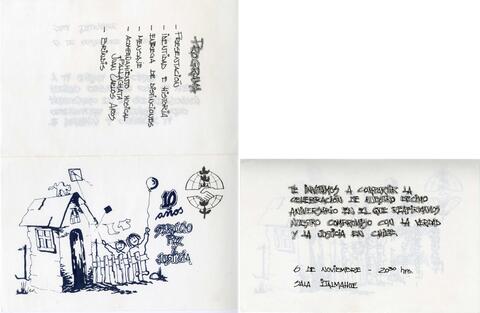 PROGRAMA
- PRESENTACIÓN
- IDENTIDAD E HISTORIA
- ENTREGA DE DISTINCIONES
- MENSAJE
- ACOMPAÑAMIENTO MUSICAL
PALLAGHATA
JUAN CARLOS AROS
- BRINDIS
10
años
SERVICIO
PAZ
y
JUSTICIA
TE INVITAMOS A COMPARTIR LA
CELEBRACIÓN DE NUESTRO DÉCIMO
ANIVERSARIO EN EL QUE REAFIRMAMOS
NUESTRO COMPROMISO CON LA VERDAD
Y LA JUSTICIA EN CHILE.
6 DE NOVIEMBRE - 20³⁰ hrs.
SALA